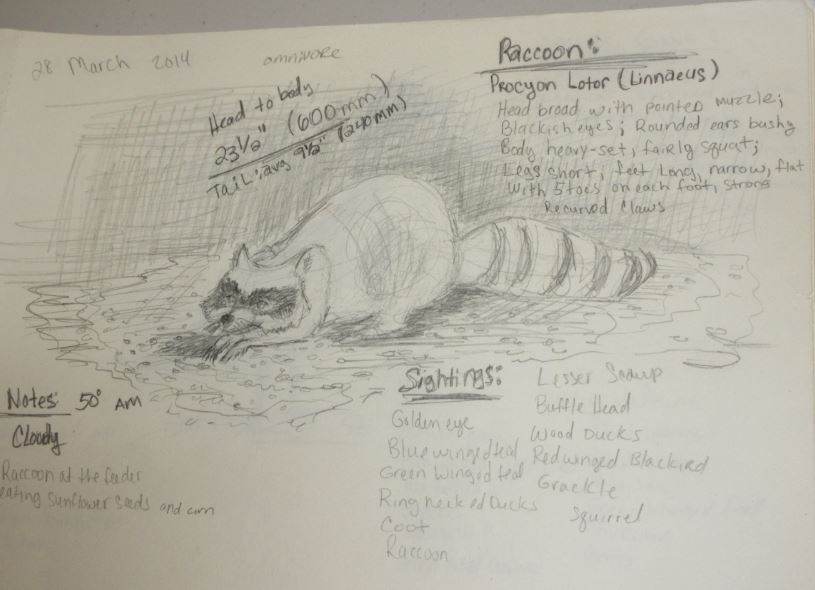 28 March 2014
omnivore
Head to body
23½" (600mm)
Tail: avg 9½" (240mm)
Raccoon:
Procyon Lotor (Linnaeus)
Head broad with pointed muzzle;
Blackish eyes; Rounded ears bushy
Body heavy-set, fairly squat;
Legs short; feet long, narrow, flat
with 5 toes on each foot, strong
Recurved Claws
Notes: 50° AM
Cloudy
Raccoon at the feeder
eating sunflower seeds and corn
Sightings:
Golden eye
Blue winged teal
Green winged teal
Ring necked Ducks
Coot
Raccoon
Lesser Scaup
Buffle Head
Wood Ducks
Redwinged Blackbird
Grackle
Squirrel